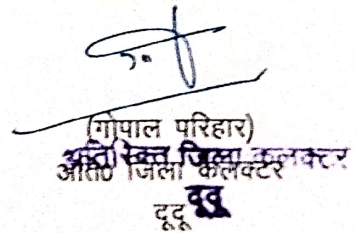 (गोपाल परिहार)
अतिरिक्त जिला कलक्टर
अति0 जिला कलेक्टर
दूदू
दूदू